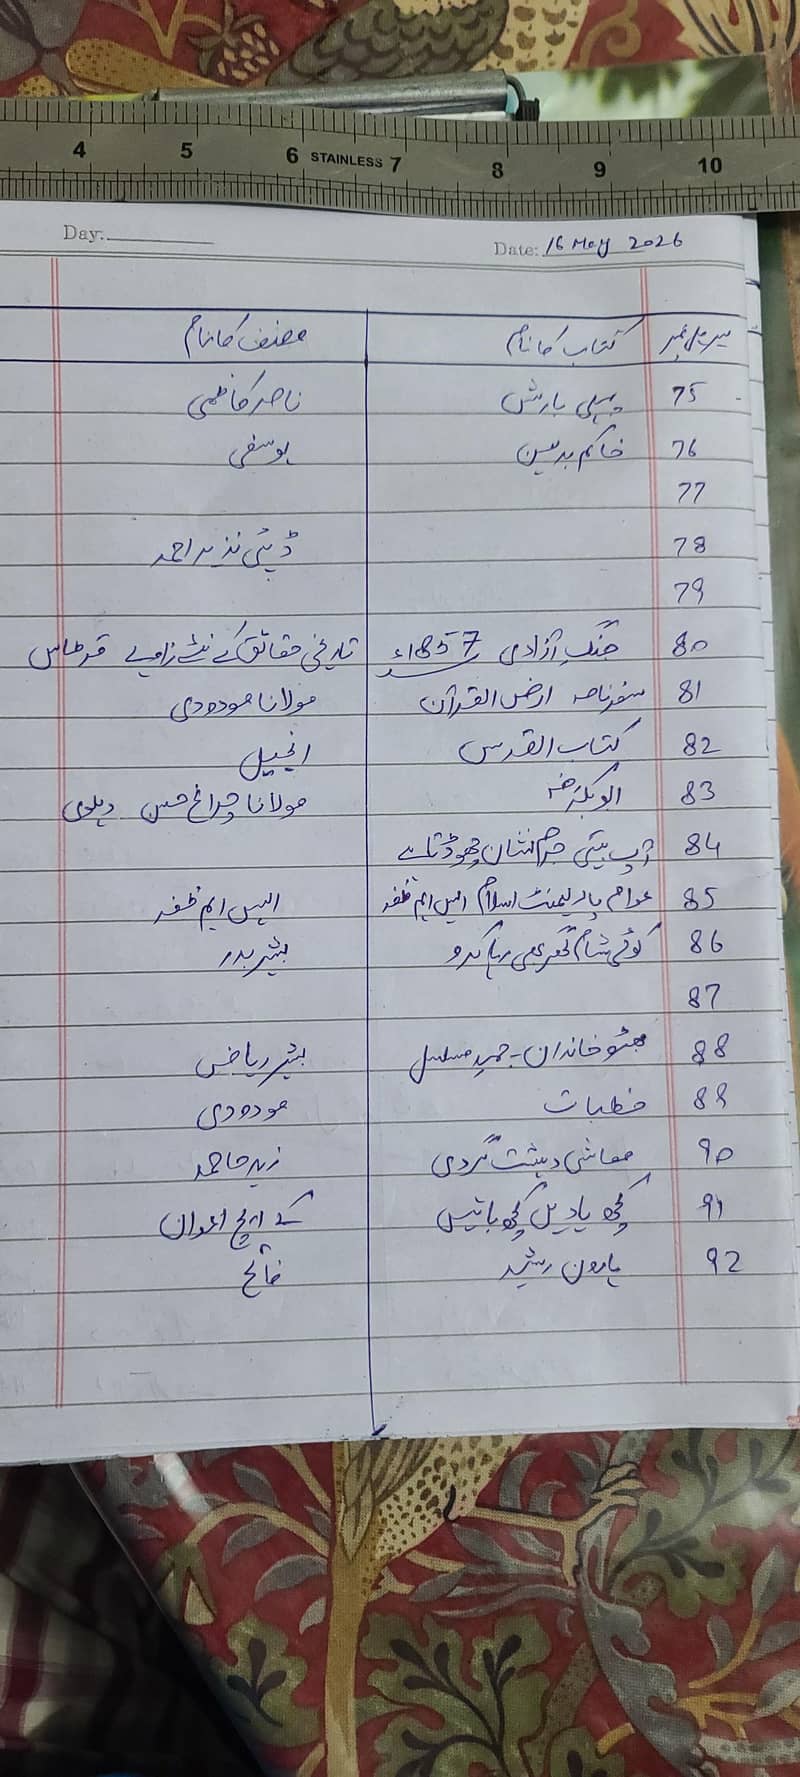 4 5 6 STAINLESS 7 8 9 10
Day: Date: 16 May 2026
سیریل نمبر کتاب کا نام مصنف کا نام
75 پہلی بارش ناصر کاظمی
76 خاکم بدہن یوسفی
77
78 ڈپٹی نذیر احمد
79
80 جنگِ آزادی 1857ء تاریخی حقائق کے نئے زاویے قرطاس
81 سفرنامہ ارض القرآن مولانا مودودی
82 کتاب القدس انجیل
83 ابوبکرؓ مولانا چراغ حسن دہلوی
84 آپ بیتی جرم نشان چھوڑتا ہے
85 عوام پارلیمنٹ اسلام ایس ایم ظفر ایس ایم ظفر
86 کوئی شام گھر بھی رہا کرو بشیر بدر
87
88 بھٹو خاندان - جہدِ مسلسل بشیر ریاض
89 خطبات مودودی
90 معاشی دہشت گردی زید حامد
91 کچھ یادیں کچھ باتیں کے ایچ اعوان
92 ہارون رشید فاتح